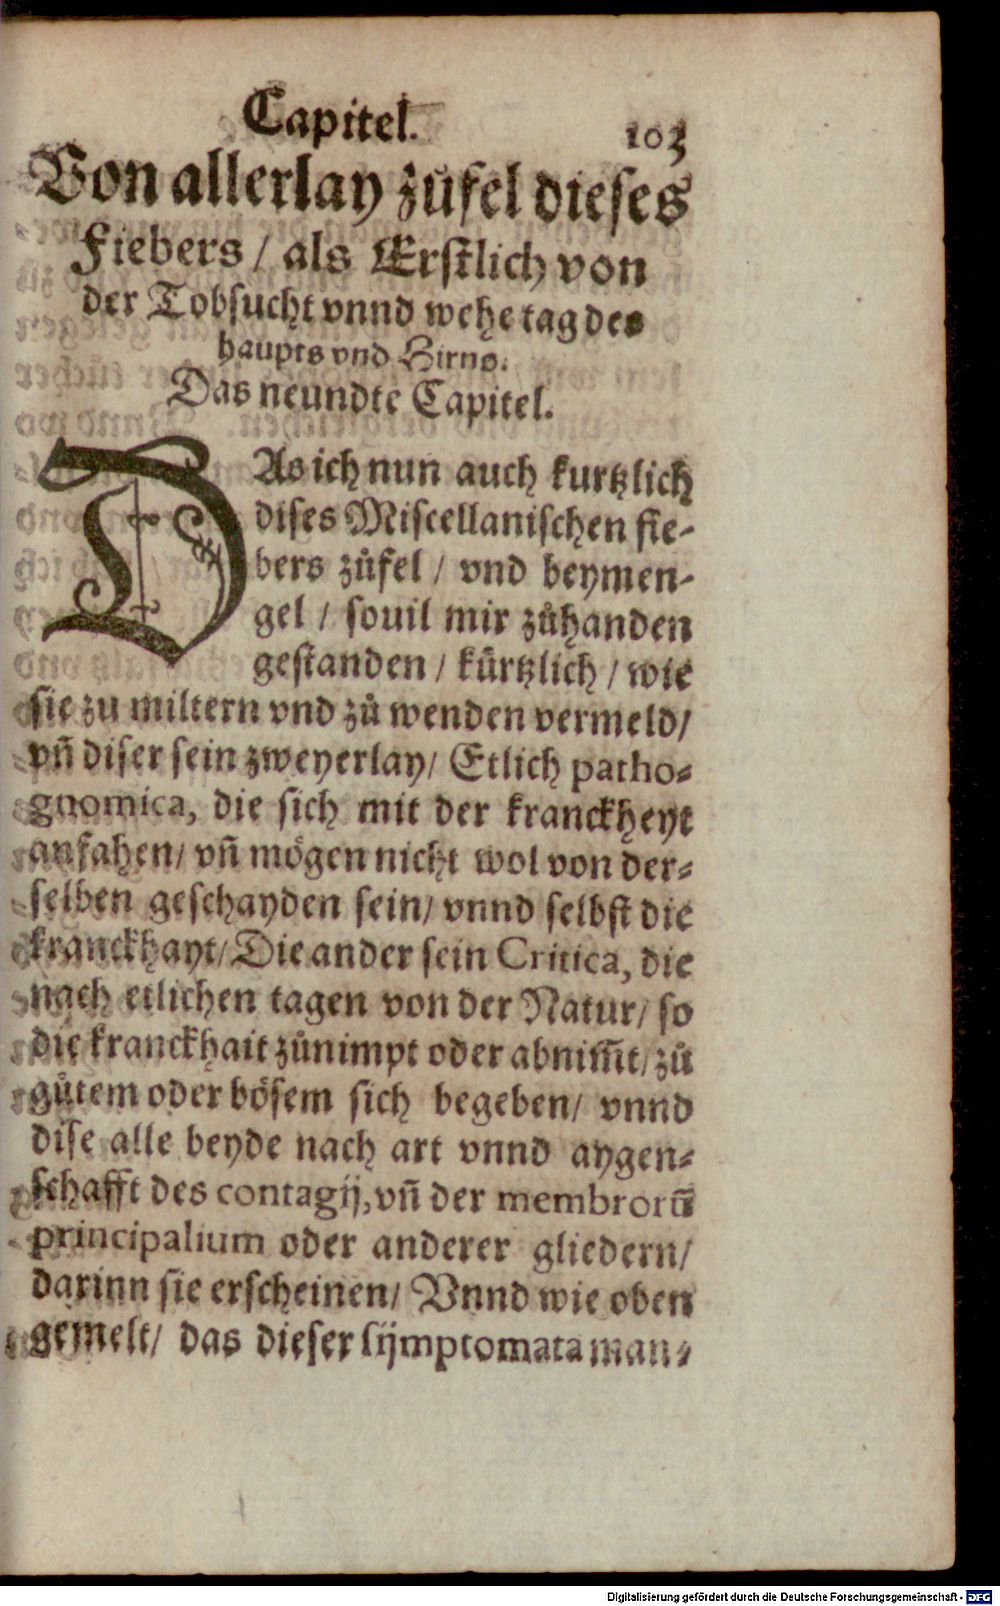 Capitel. 103
Von allerlay zůfel dieses
Fiebers / als Erstlich von
der Tobsucht vnnd wehe tag des
haupts vnd Hirns.
Das neundte Capitel.
DAs ich nun auch kurtzlich
dises Miscellanischen fie-
bers zůfel / vnd beymen-
gel / souil mir zůhanden
gestanden / kürtzlich / wie
sie zu miltern vnd zů wenden vermeld /
vñ diser sein zweyerlay / Etlich patho-
gnomica, die sich mit der kranckheyt
anfahen / vñ mögen nicht wol von der-
selben geschayden sein / vnnd selbst die
kranckhayt / Die ander sein Critica, die
nach etlichen tagen von der Natur / so
die kranckhait zůnimpt oder abnim̃t / zů
gůtem oder bösem sich begeben / vnnd
dise alle beyde nach art vnnd aygen-
schafft des contagij, vñ der membrorũ
principalium oder anderer gliedern /
darinn sie erscheinen / Vnnd wie oben
gemelt / das dieser sijmptomata man-
Digitalisierung gefördert durch die Deutsche Forschungsgemeinschaft - DFG